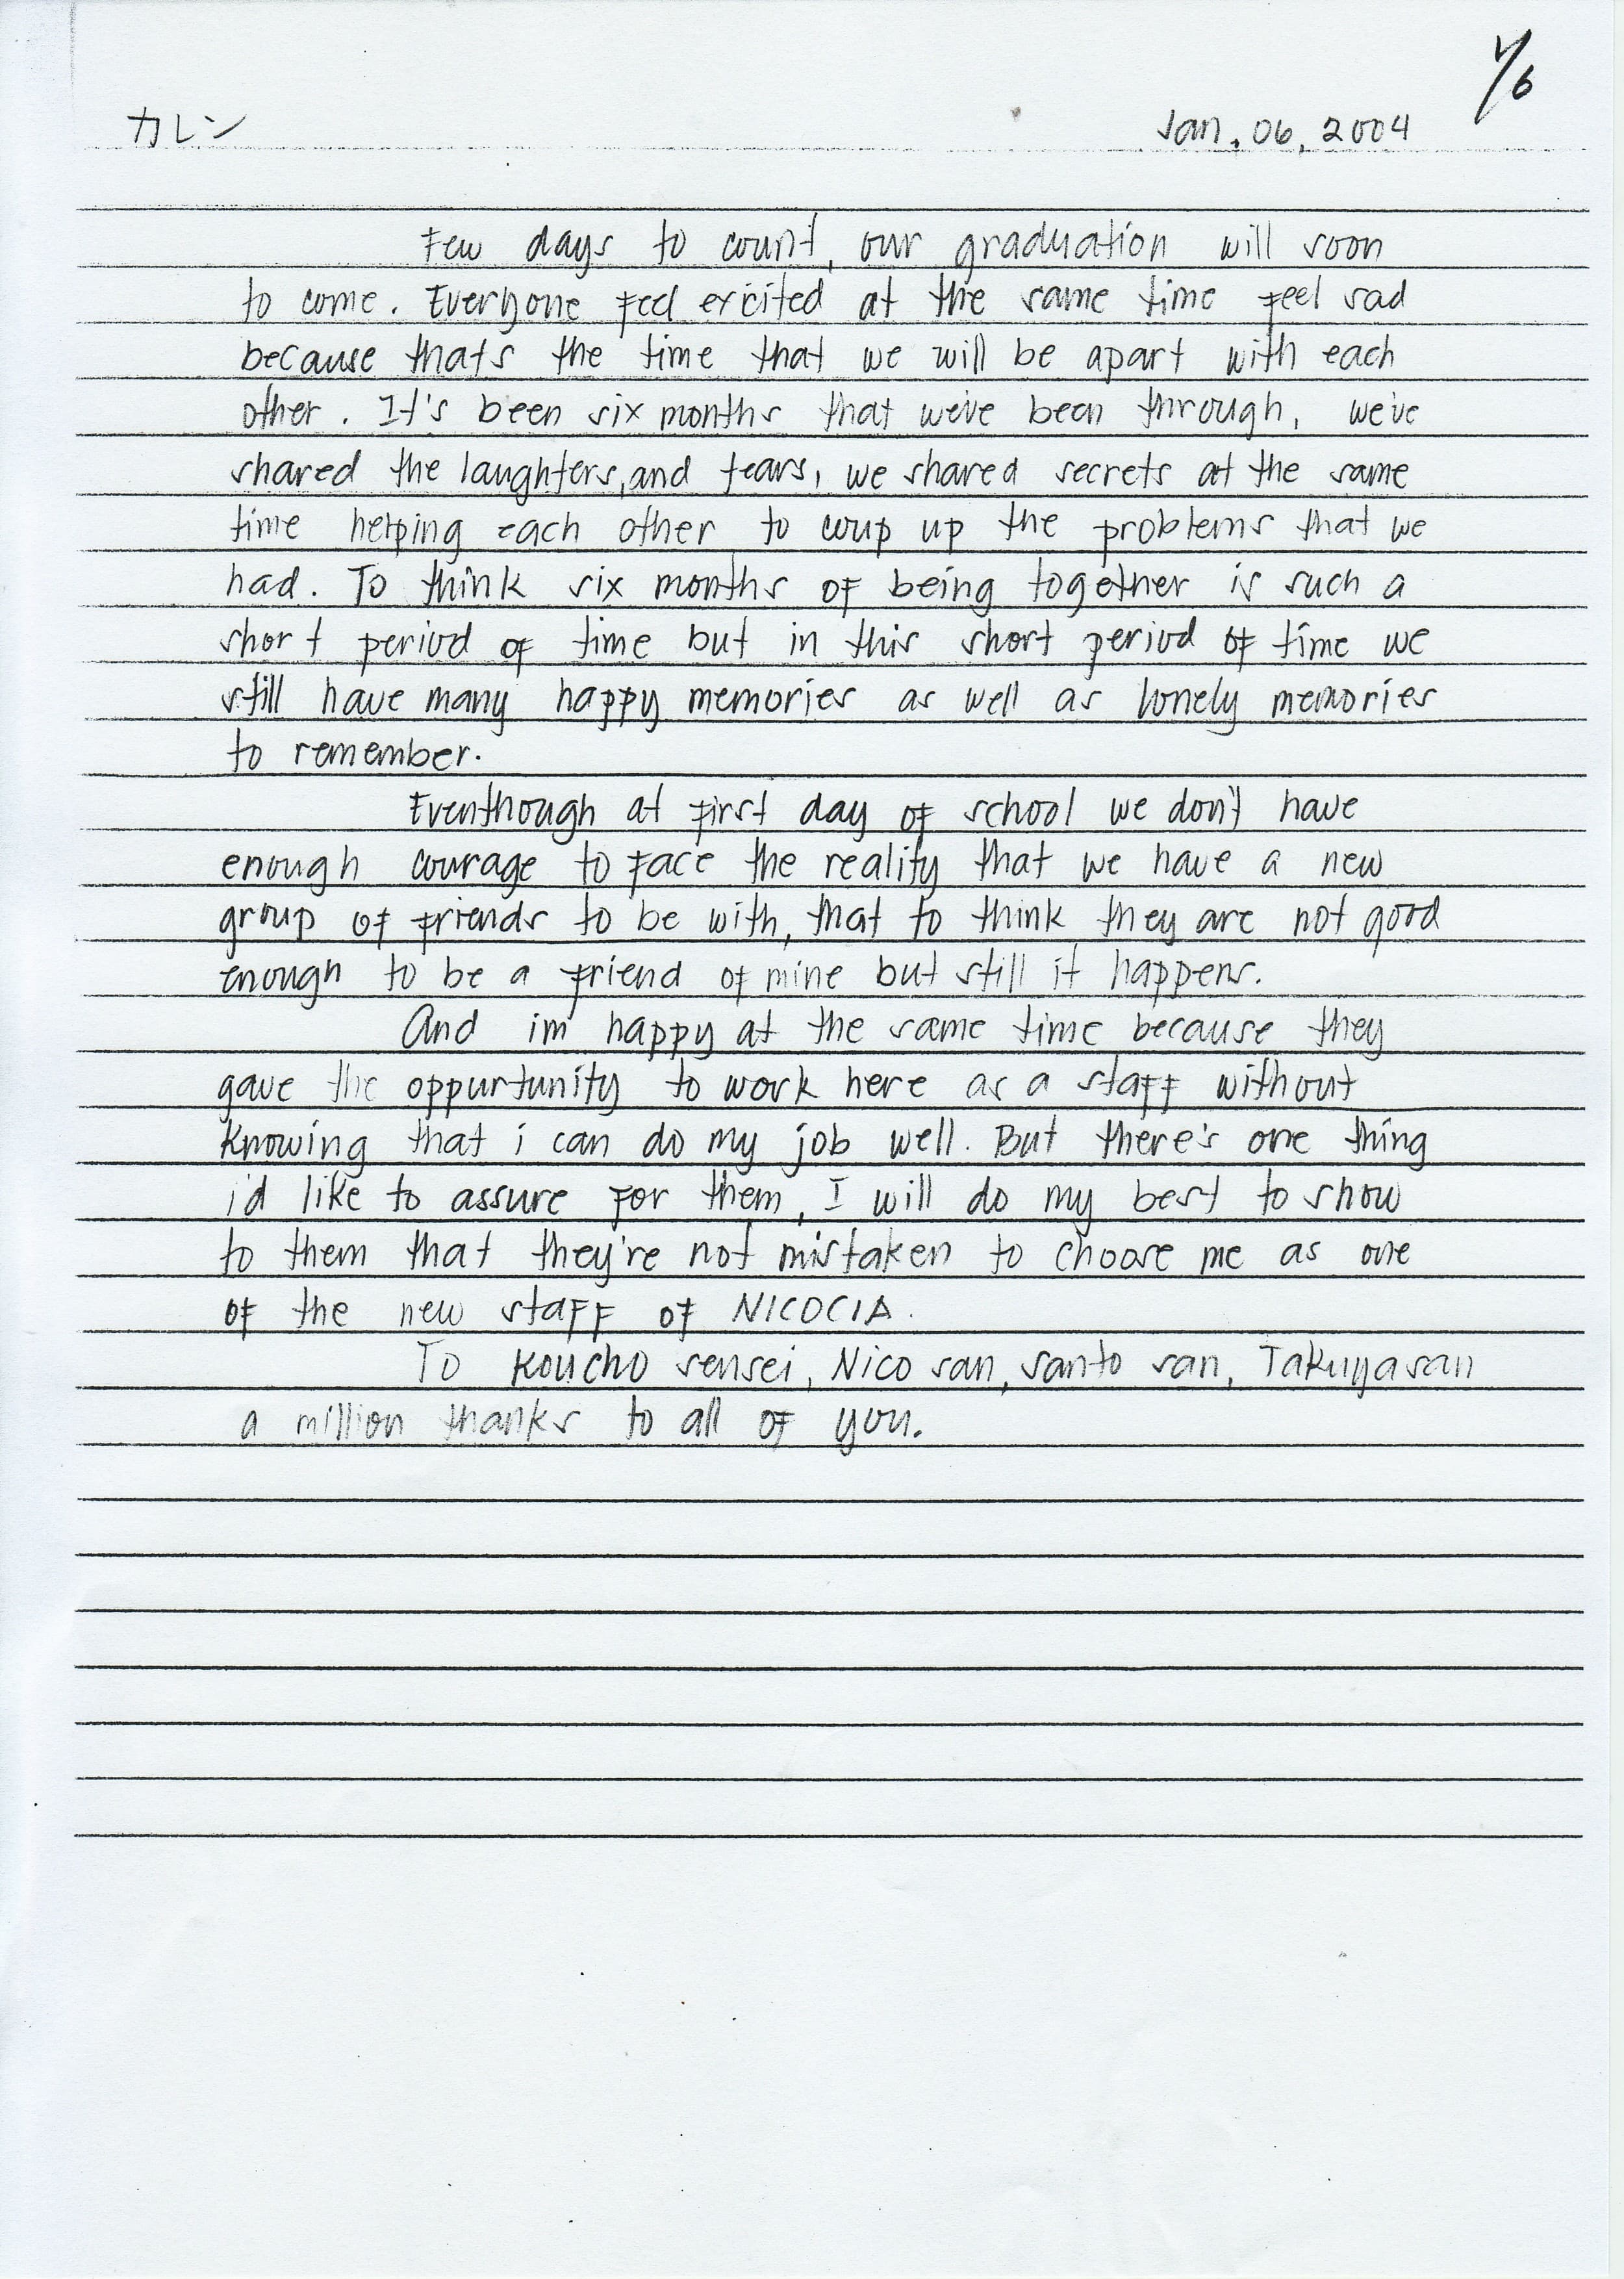 1/6
カレン Jan. 06, 2004
Few days to count, our graduation will soon
to come. Everyone feel excited at the same time feel sad
because thats the time that we will be apart with each
other. It's been six months that we've been through, we've
shared the laughters, and tears, we shared secrets at the same
time helping each other to coup up the problems that we
had. To think six months of being together is such a
short period of time but in this short period of time we
still have many happy memories as well as lonely memories
to remember.
Eventhough at first day of school we don't have
enough courage to face the reality that we have a new
group of friends to be with, that to think they are not good
enough to be a friend of mine but still it happens.
And im happy at the same time because they
gave the oppurtunity to work here as a staff without
knowing that i can do my job well. But there's one thing
i'd like to assure for them, I will do my best to show
to them that they're not mistaken to choose me as one
of the new staff of NICOCIA.
To Koucho sensei, Nico san, santo san, Takuya san
a million thanks to all of you.